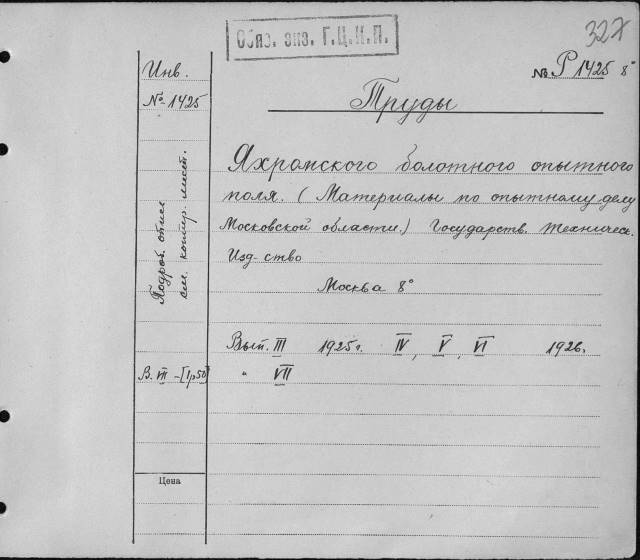 Обяз. экз. Г.Ц.К.П.
327
Инв.
№ 1425
№ Р 1425 8°
Труды
Яхромского болотного опытного
поля. (Материалы по опытному делу
Московской области.) Государств. Техническ.
Изд-ство
Москва 8°
Подроб. опис.
см. контр. лист.
Вып. III 1925 г. IV, V, VI 1926.
В. VII - [1р50] " VII
Цена